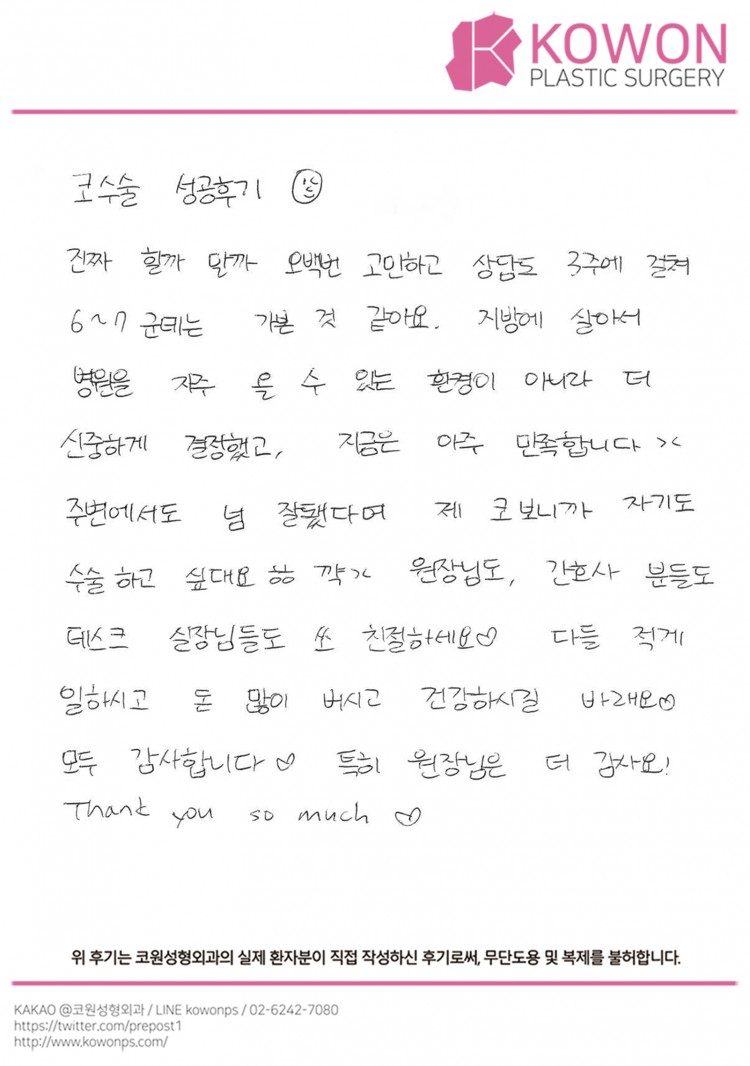 KOWON
PLASTIC SURGERY
코수술 성공후기
진짜 할까 말까 오백번 고민하고 상담도 3주에 걸쳐
6~7 군데는 가본 것 같아요. 지방에 살아서
병원을 자주 올 수 있는 환경이 아니라 더
신중하게 결정했고, 지금은 아주 만족합니다 ><
주변에서도 넘 잘됐다며 제 코보니까 자기도
수술하고 싶대요 ㅎㅎ 꺅>< 원장님도, 간호사 분들도
데스크 실장님들도 쏘 친절하세요♡ 다들 적게
일하시고 돈 많이 버시고 건강하시길 바래요♡
모두 감사합니다♡ 특히 원장님은 더 감사요!
Thank you so much ♡
위 후기는 코원성형외과의 실제 환자분이 직접 작성하신 후기로써, 무단도용 및 복제를 불허합니다.
KAKAO @코원성형외과 / LINE kowonps / 02-6242-7080
https://twitter.com/prepost1
http://www.kowonps.com/